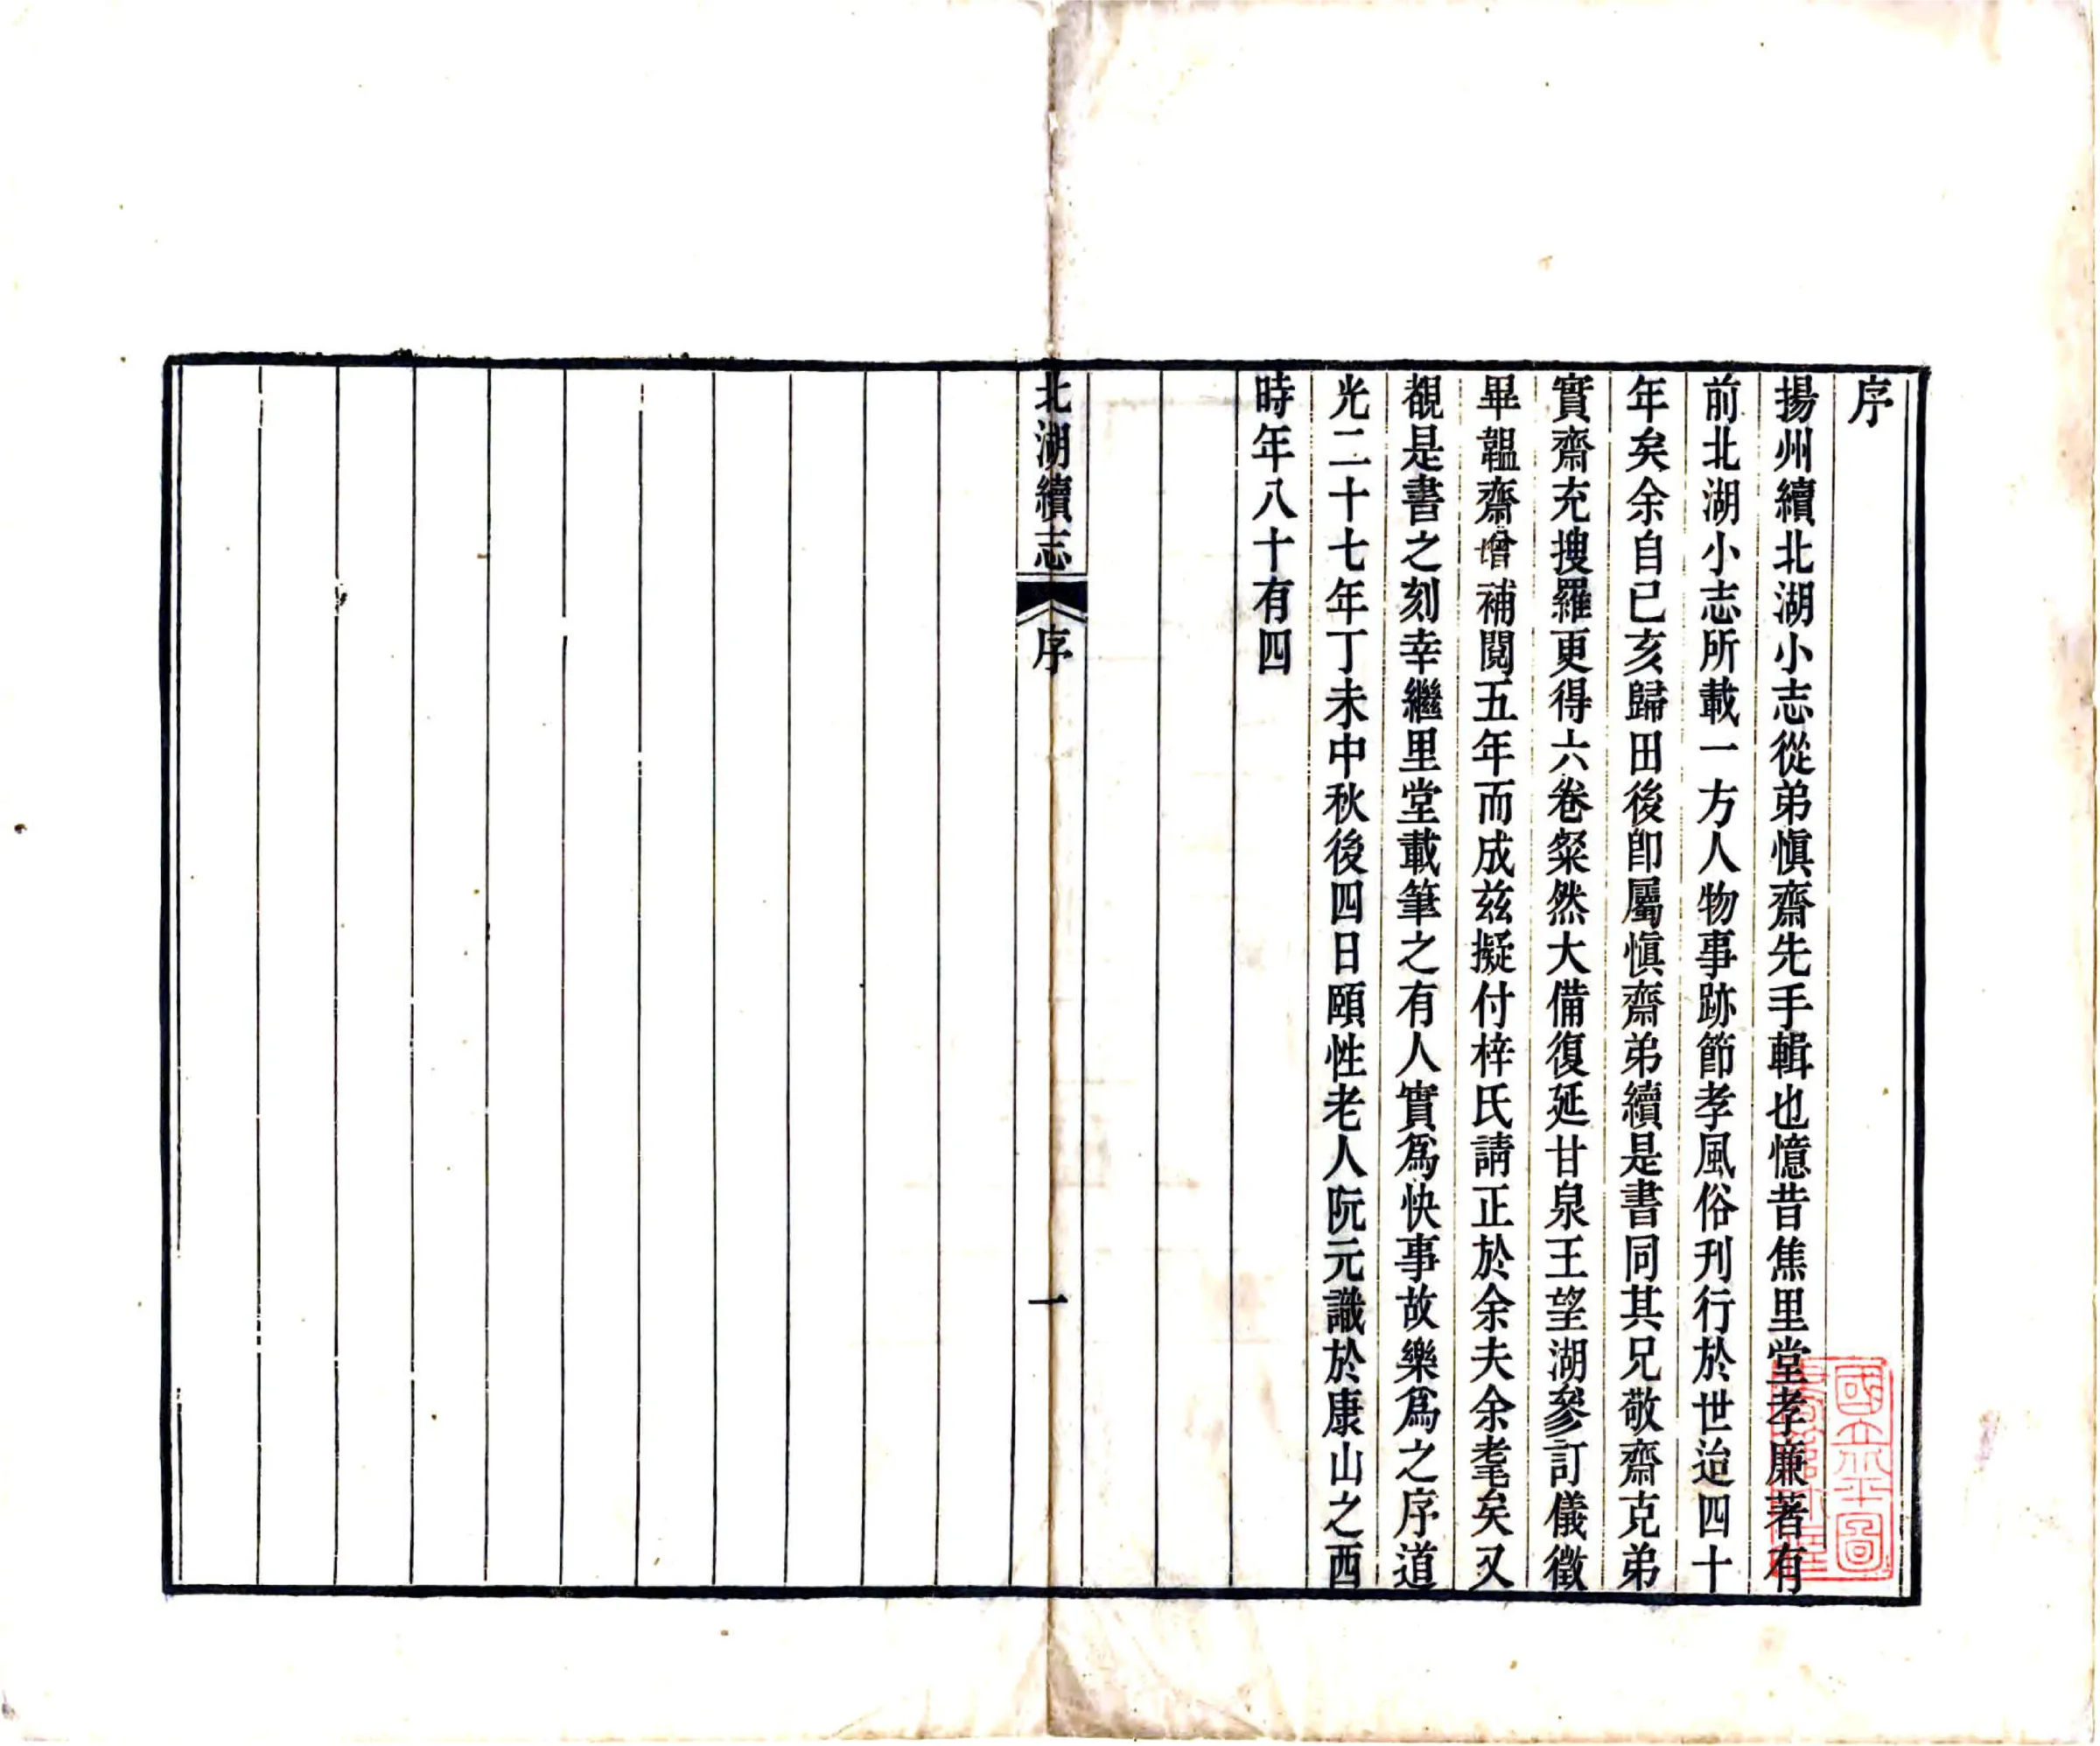 序
揚州續北湖小志從弟慎齋先手輯也憶昔焦里堂孝廉著有
前北湖小志所載一方人物事跡節孝風俗刊行於世迨四十
年矣余自己亥歸田後卽屬慎齋弟續是書同其兄敬齋克弟
實齋充搜羅更得六卷粲然大備復延甘泉王望湖參訂儀徵
畢韞齋增補閱五年而成茲擬付梓氏請正於余夫余耄矣又
覩是書之刻幸繼里堂載筆之有人實爲快事故樂爲之序道
光二十七年丁未中秋後四日頤性老人阮元識於康山之西
時年八十有四
北湖續志 序 一